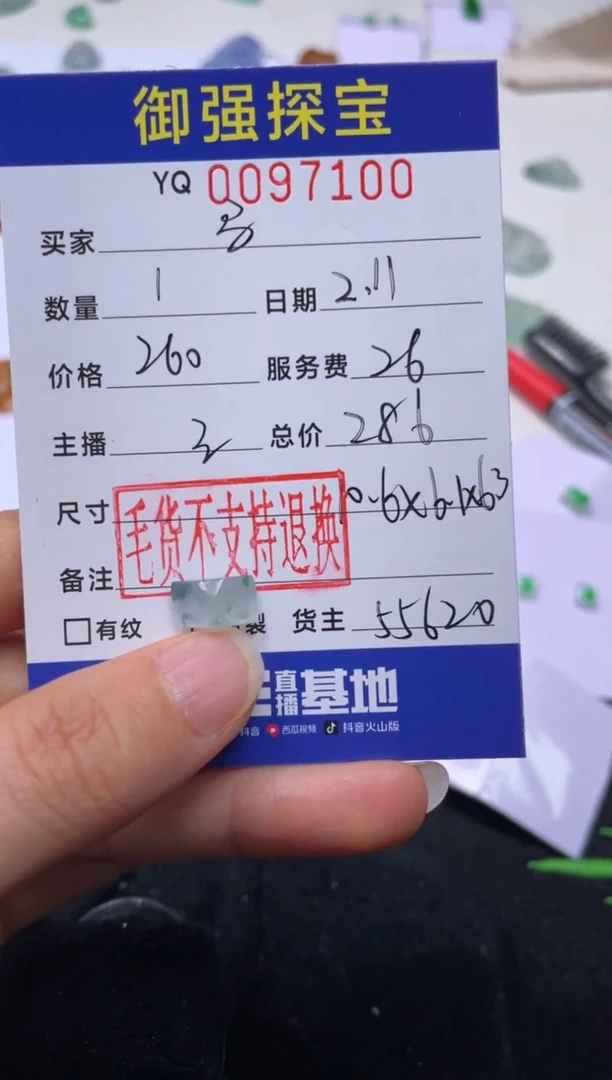 御强探宝
YQ 0097100
买家
数量 1 日期 2.11
价格 260 服务费 26
主播 总价 286
尺寸 10.6×6.1×6.3
毛货不支持退换
备注
有纹 裂 货主 55620
直播基地
抖音 西瓜视频 抖音火山版